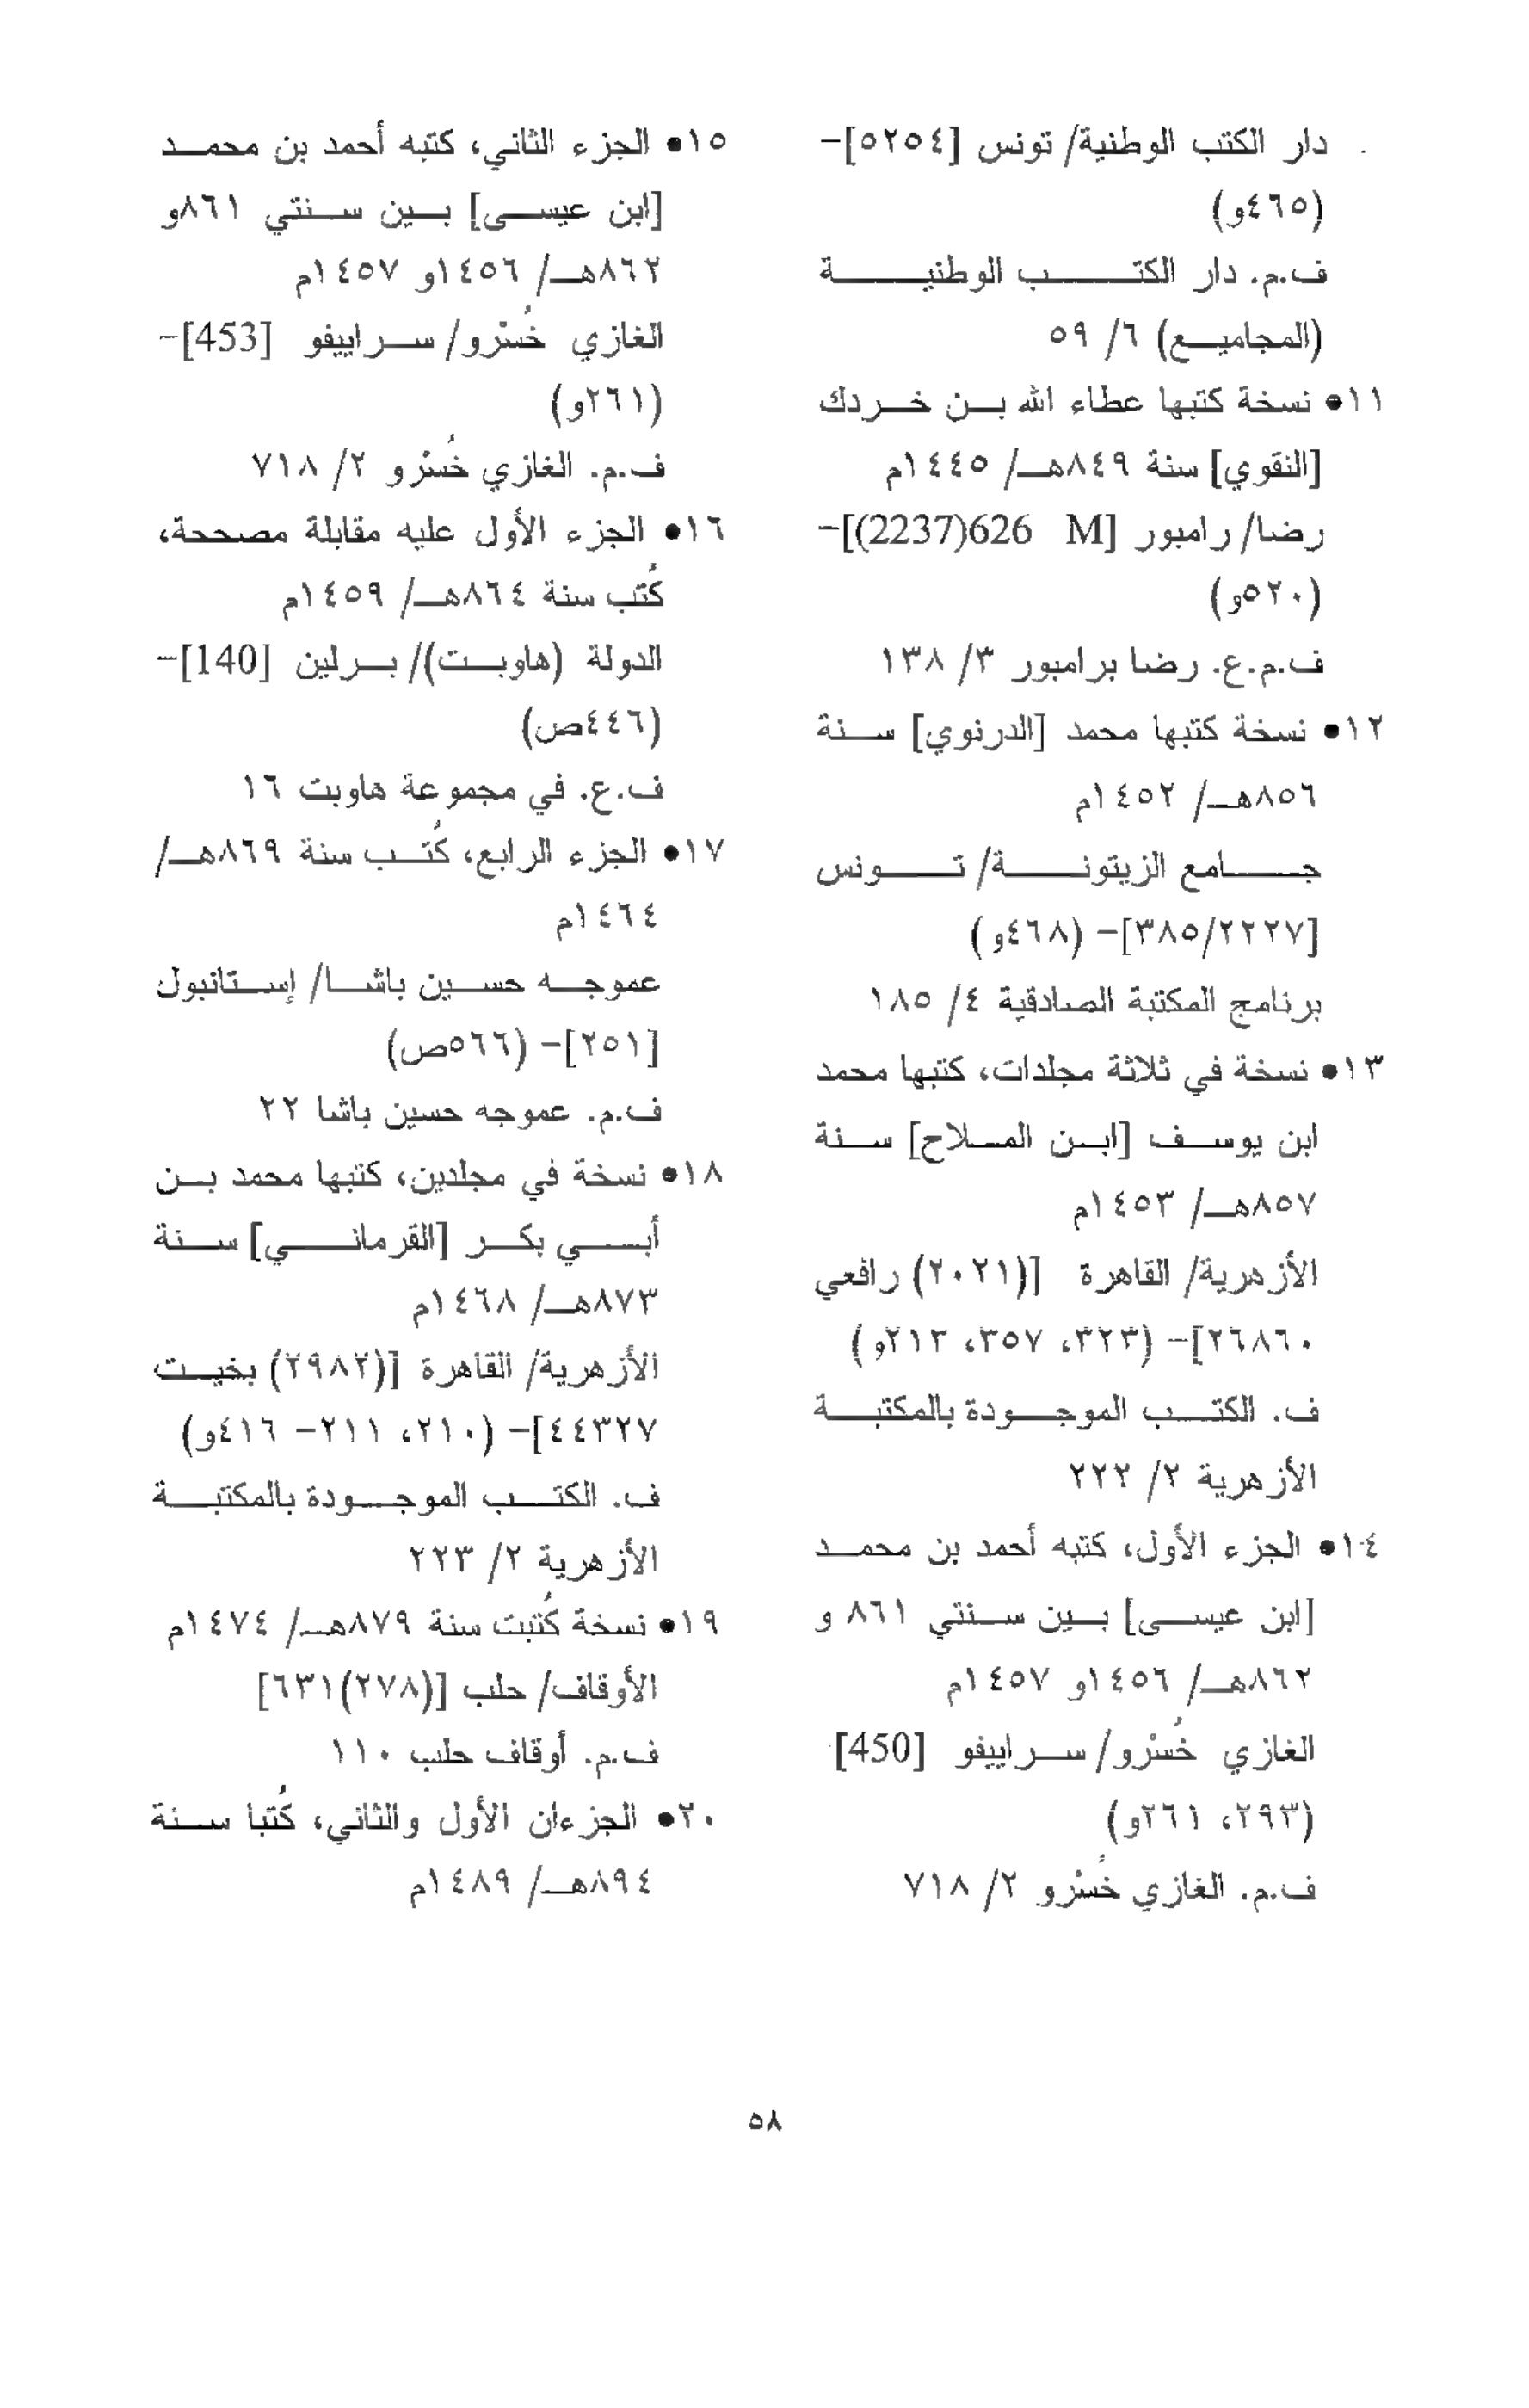 دار الكتب الوطنية/ تونس [٥٢٥٤]-
(٤٦٥و)
ف.م. دار الكتب الوطنية
(المجاميع) ٦/ ٥٩
١١• نسخة كتبها عطاء الله بن خردك
[النقوي] سنة ٨٤٩هـ/ ١٤٤٥م
رضا/ رامبور [M 626(2237)]-
(٥٢٠و)
ف.م.ع. رضا برامبور ٣/ ١٣٨
١٢• نسخة كتبها محمد [الدرنوي] سنة
٨٥٦هـ/ ١٤٥٢م
جامع الزيتونة/ تونس
[٣٨٥/٢٢٢٧]- (٤٦٨و)
برنامج المكتبة الصادقية ٤/ ١٨٥
١٣• نسخة في ثلاثة مجلدات، كتبها محمد
ابن يوسف [ابن الملاح] سنة
٨٥٧هـ/ ١٤٥٣م
الأزهرية/ القاهرة [(٢٠٢١) رافعي
٢٦٨٦٠]- (٣٢٣، ٣٥٧، ٢١٣و)
ف. الكتب الموجودة بالمكتبة
الأزهرية ٢/ ٢٢٢
١٤• الجزء الأول، كتبه أحمد بن محمد
[ابن عيسى] بين سنتي ٨٦١ و
٨٦٢هـ/ ١٤٥٦و ١٤٥٧م
الغازي خُسْرو/ سراييفو [450]
(٢٩٣، ٢٦١و)
ف.م. الغازي خُسْرو ٢/ ٧١٨
١٥• الجزء الثاني، كتبه أحمد بن محمد
[ابن عيسى] بين سنتي ٨٦١و
٨٦٢هـ/ ١٤٥٦و ١٤٥٧م
الغازي خُسْرو/ سراييفو [453]-
(٢٦١و)
ف.م. الغازي خُسْرو ٢/ ٧١٨
١٦• الجزء الأول عليه مقابلة مصححة،
كُتب سنة ٨٦٤هـ/ ١٤٥٩م
الدولة (هاوبت)/ برلين [140]-
(٤٤٦ص)
ف.ع. في مجموعة هاوبت ١٦
١٧• الجزء الرابع، كُتب سنة ٨٦٩هـ/
١٤٦٤م
عموجه حسين باشا/ إستانبول
[٢٥١]- (٥٦٦ص)
ف.م. عموجه حسين باشا ٢٢
١٨• نسخة في مجلدين، كتبها محمد بن
أبي بكر [القرماني] سنة
٨٧٣هـ/ ١٤٦٨م
الأزهرية/ القاهرة [(٢٩٨٢) بخيت
٤٤٣٢٧]- (٢١٠، ٢١١- ٤١٦و)
ف. الكتب الموجودة بالمكتبة
الأزهرية ٢/ ٢٢٣
١٩• نسخة كُتبت سنة ٨٧٩هـ/ ١٤٧٤م
الأوقاف/ حلب [(٢٧٨)٦٣١]
ف.م. أوقاف حلب ١١٠
٢٠• الجزءان الأول والثاني، كُتبا سنة
٨٩٤هـ/ ١٤٨٩م
٥٨